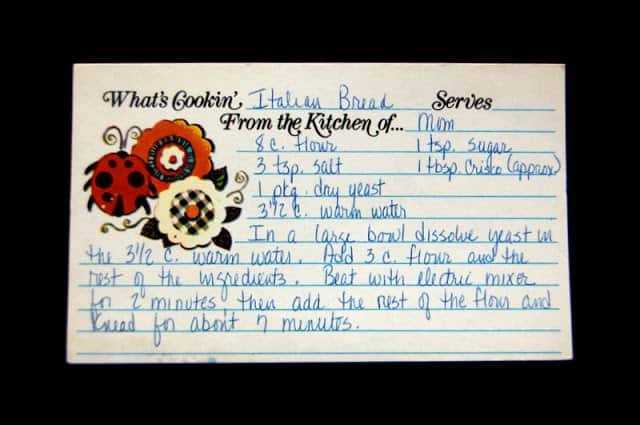 What's Cookin' Italian Bread Serves
From the Kitchen of... Mom
8 c. flour 1 tsp. sugar
3 tsp. salt 1 tbsp. Crisco (approx)
1 pkg. dry yeast
3 1/2 c. warm water
In a large bowl dissolve yeast in
the 3 1/2 c. warm water. Add 3 c. flour and the
rest of the ingredients. Beat with electric mixer
for 2 minutes, then add the rest of the flour and
knead for about 7 minutes.